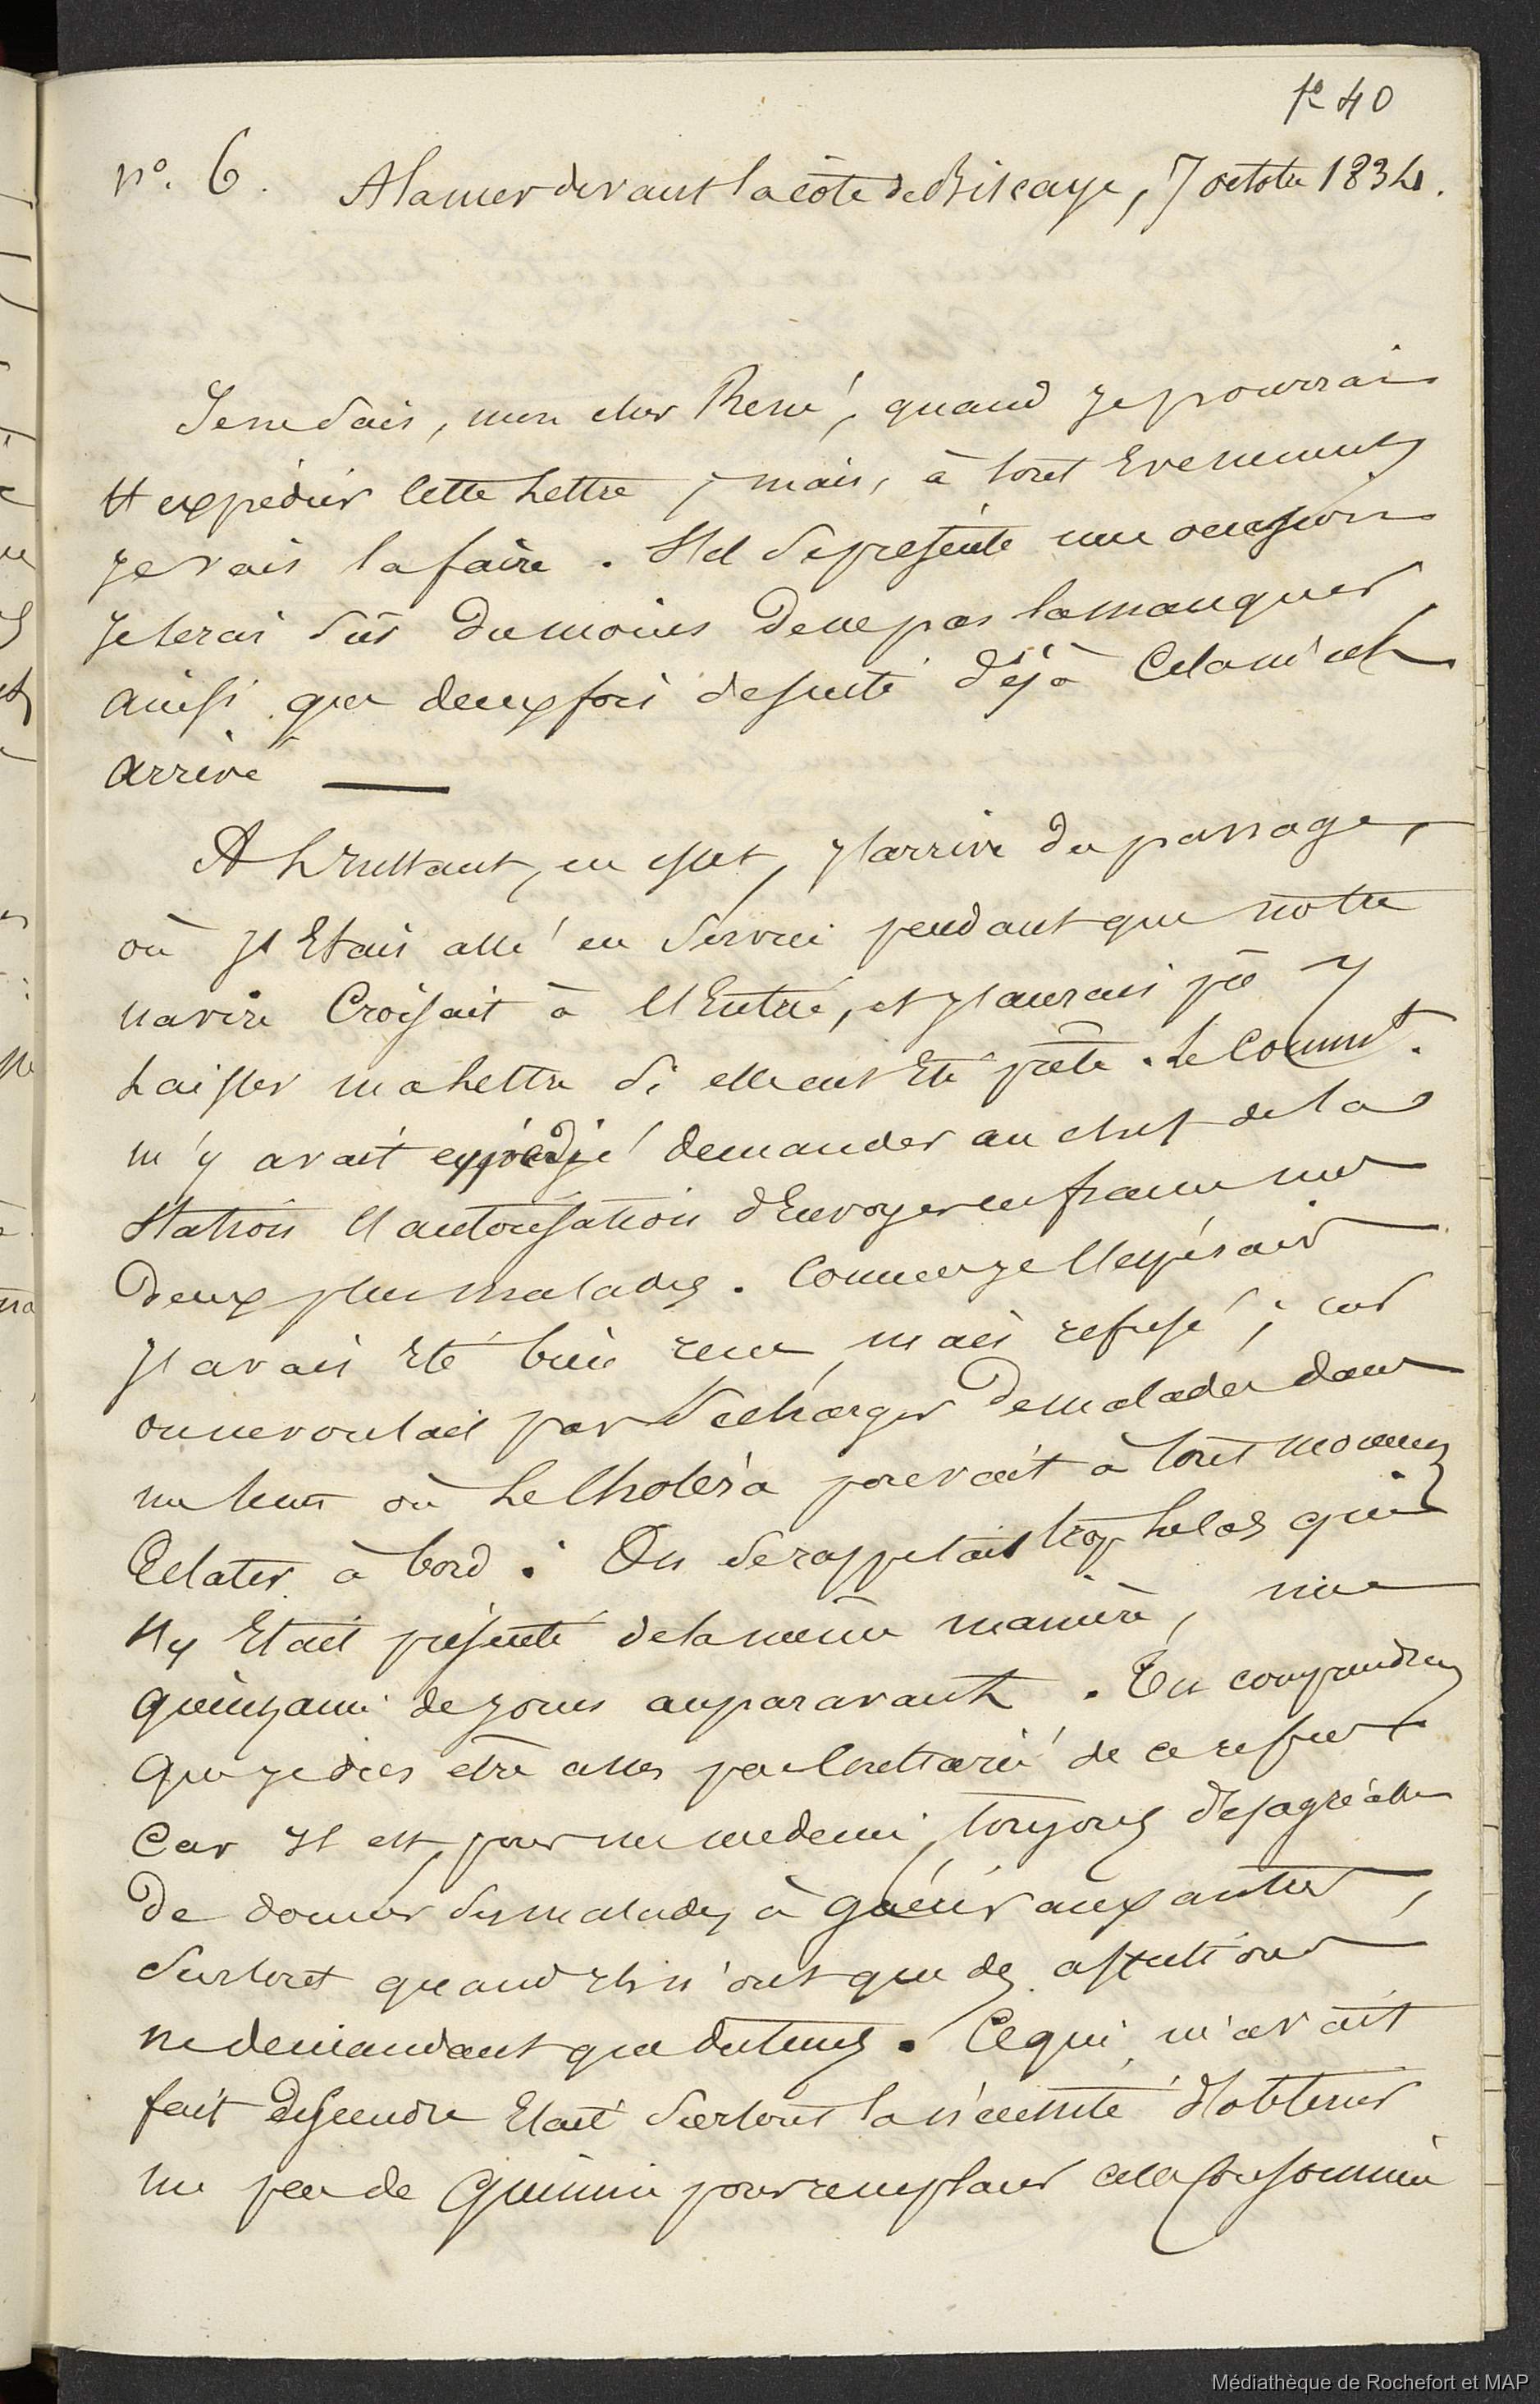 fo 40
no. 6. A la mer devant la côte de Biscaye, 7 octobre 1834.
Je ne sais, mon cher René, quand je pourrai
t'expédier cette Lettre ; mais, à tout Evenement,
je vais la faire. S'il se présente une occasion
je serai sûr du moins de ne pas la manquer,
ainsi que deux fois de suite déjà Cela m'est
arrivé —
A L'Instant, en effet, j'arrive du passage,
où j'Etais allé en Service pendant que notre
navire Croisait à l'Entrée, et j'aurais pû y
Laisser ma Lettre si elle eut Eté prête. Le Commt.
m'y avait expédié demander au chef de la
Station l'autorisation d'Envoyer en france nos
Deux plus malades. Comme je l'espérais
j'avais Eté bien reçu, mais refusé ; car
on ne voulait pas se charger de malades dans
un tems où Le Choléra pouvait à tout moment
Eclater à bord. On se rappelait trop helas qu'il
s'y Etait présenté de la même manière, une
quinzaine de jours auparavant. Tu comprendras
que je dus être assez peu Contrarié de ce refus
Car Il est, pour un medecin, toujours désagréable
De donner ses malades à guérir aux autres,
Surtout quand Ils n'ont que des affections
ne demandant que du tems. Ce qui m'avait
fait descendre Etait surtout la nécessité d'obtenir
un peu de Quinine pour remplacer celle Consommée
Médiathèque de Rochefort et MAP